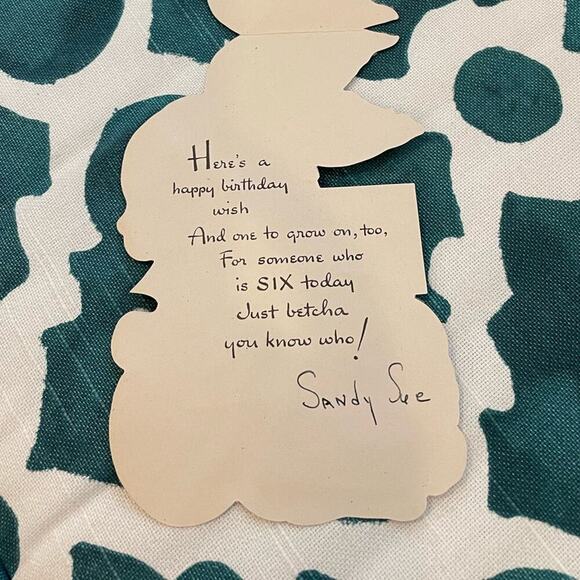 Here's a
happy birthday
wish
And one to grow on, too,
For someone who
is SIX today
Just betcha
you know who!
Sandy Sue